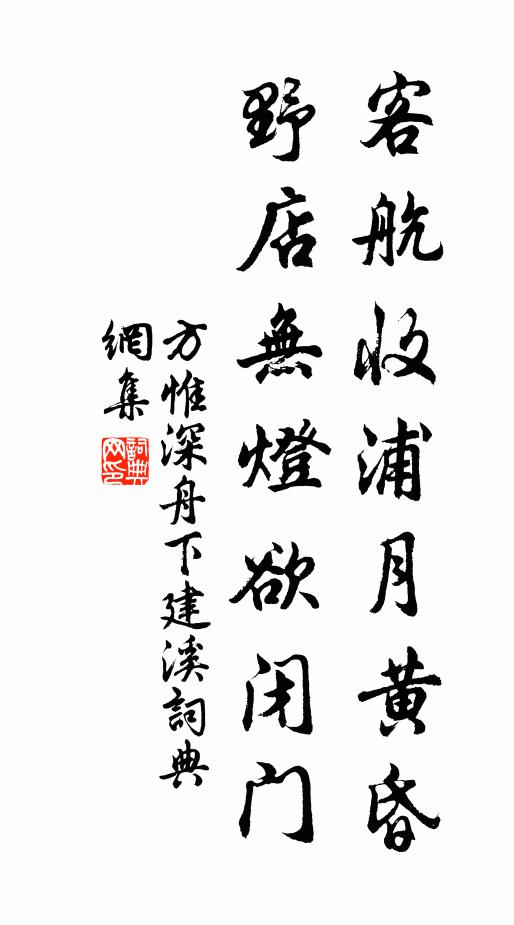 客航收浦月黄昏
野店無燈欲闭门
方惟深舟下建溪詞典
網集
詞典网印